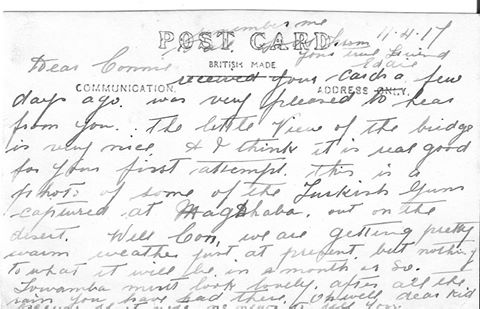 remember me
POST CARD
from 11.4.17
your true friend
Eddie
Dear Connie
BRITISH MADE
received your card a few
COMMUNICATION.
ADDRESS ONLY.
days ago. was very pleased to hear
from you. The little View of the bridge
is very nice, & I think it is real good
for your first attempt. this is a
photo of some of the Turkish Guns
captured at Maghaba. out on the
desert. Well Con, we are getting pretty
warm weather just at present, but nothing
to what it will be in a month or so.
Towamba must look lovely, after all the
rain you have had there. Oh well dear kid